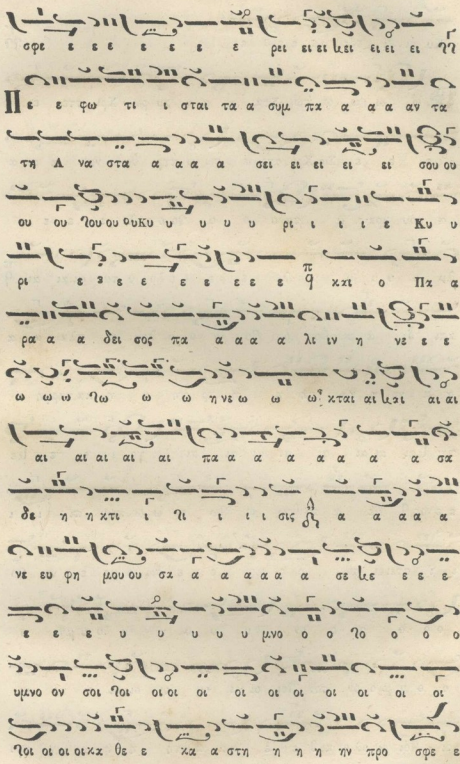 σφε ε ε ε ε ε ε ε ρει ει ει κει ει ει ει
Πε ε φω τι ι σται τα α συμ πα α α α αν τα
τη Α να στα α α α α σει ει ει ει ει σου ου
ου ου ου ου Κυ υ υ υ υ ρι ι ι ι ε Κυ υ
ρι ε ε ε ε ε ε ε ε και ο Πα α
ρα α α δει σος πα α α α α λι ιν η νε ε ε
ω ω ω ω ω η νε ω ω ω κται αι και αι αι
αι αι αι αι αι πα α α α α α α α α σα
δε η η κτι ι ι ι ι σις α α α α α
νε ευ φη μου ου σα α α α α α α σε κε ε ε ε
ε ε ε υ υ υ υ υ μνο ο ο ο ο ο
υμνο ον σοι οι οι οι οι οι οι οι οι οι
οι οι οι κα θε ε κα α στη η η η ην προ σφε ε